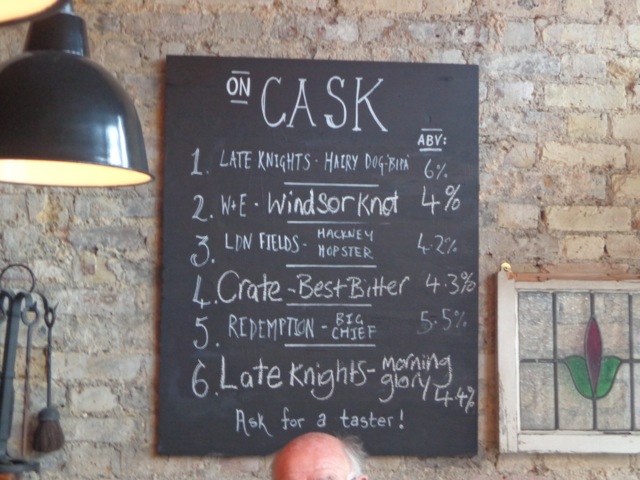 ON CASK
ABV:
1. LATE KNIGHTS - HAIRY DOG-'BIPA' 6%
2. W+E - Windsor Knot 4%
3. LDN FIELDS - HACKNEY HOPSTER 4.2%
4. Crate - Best Bitter 4.3%
5. REDEMPTION - BIG CHIEF 5.5%
6. Late Knights - morning glory 4.4%
Ask for a taster!